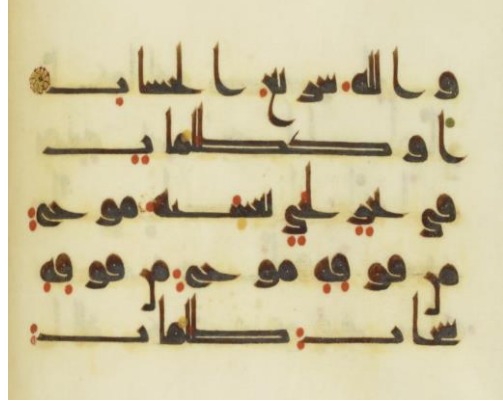 والله سريع الحساب
او كظلمات
في بحر لجي يغشيه موج
من فوقه موج من فوقه
سحاب ظلمات